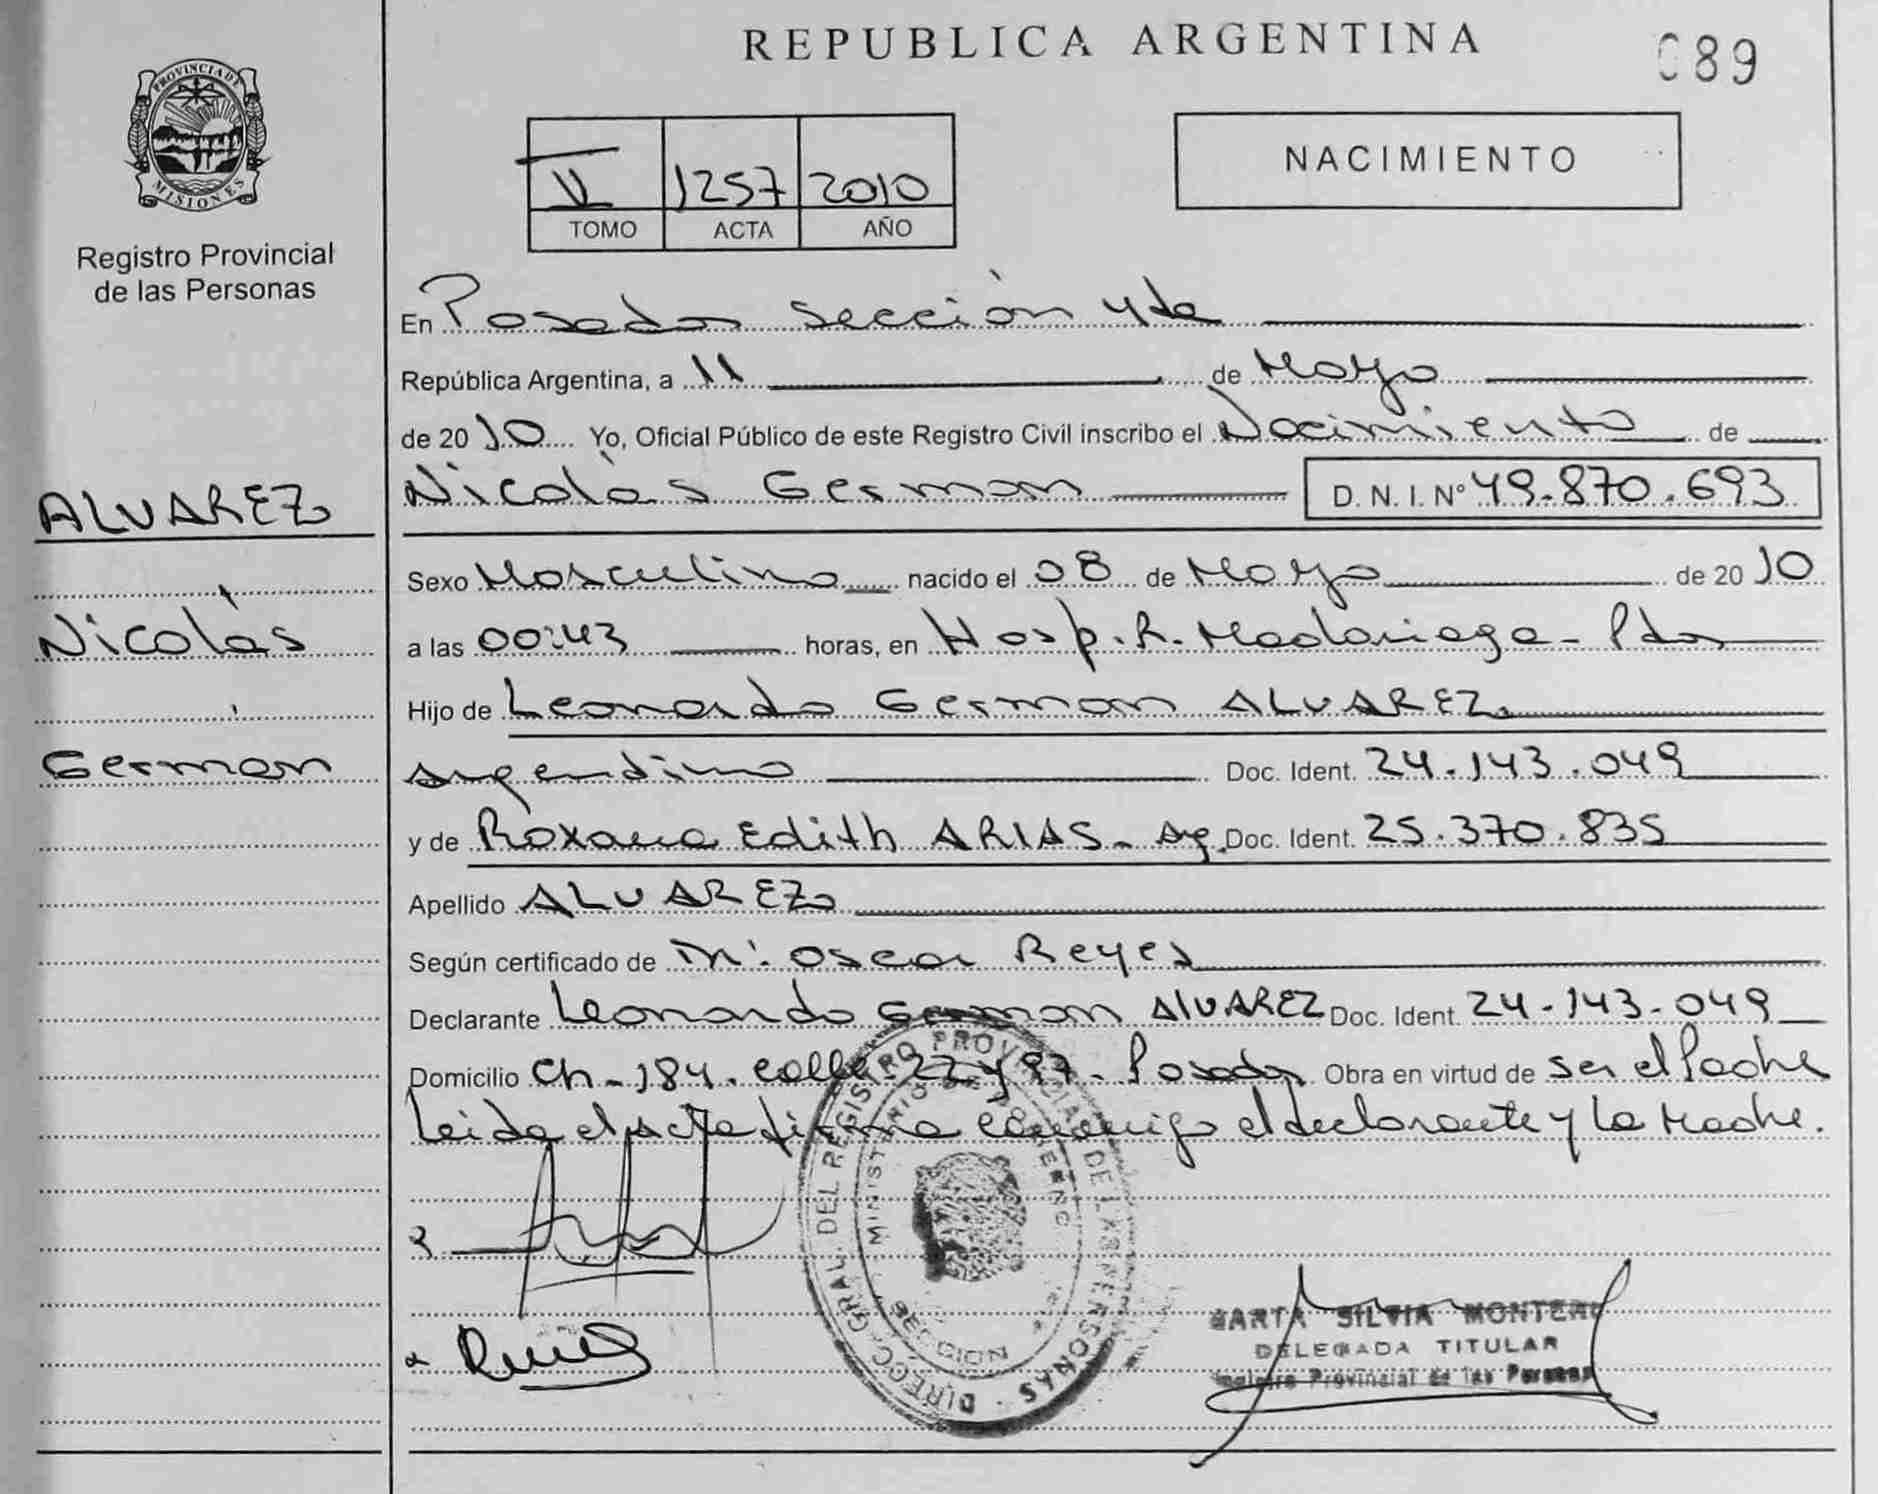 REPUBLICA ARGENTINA
089
PROVINCIA DE MISIONES
Registro Provincial
de las Personas
V 1257 2010
TOMO ACTA AÑO
NACIMIENTO
En Posadas sección 4ta
República Argentina, a 11 de Mayo
de 2010 Yo, Oficial Público de este Registro Civil inscribo el Nacimiento de
Nicolás German D. N. I. Nº 49.870.693
ALVAREZ
Nicolás
German
Sexo Masculino nacido el 08 de Mayo de 2010
a las 00:43 horas, en Hosp. R. Madariaga - Pdas
Hijo de Leonardo German ALVAREZ
argentino Doc. Ident. 24.143.049
y de Roxana Edith ARIAS - Arg. Doc. Ident. 25.370.835
Apellido ALVAREZ
Según certificado de Oscar Reyes
Declarante Leonardo German ALVAREZ Doc. Ident. 24-143-049
Domicilio Ch-184. calle 22 y 97 - Posadas Obra en virtud de ser el Padre
Leida el acta firma conmigo el declarante y la Madre.
DIRECC. GRAL. DEL REGISTRO PROVINCIAL DE LAS PERSONAS
MINISTERIO DE GOBIERNO
SECCION
MARTA SILVIA MONTERO
DELEGADA TITULAR
Registro Provincial de las Personas